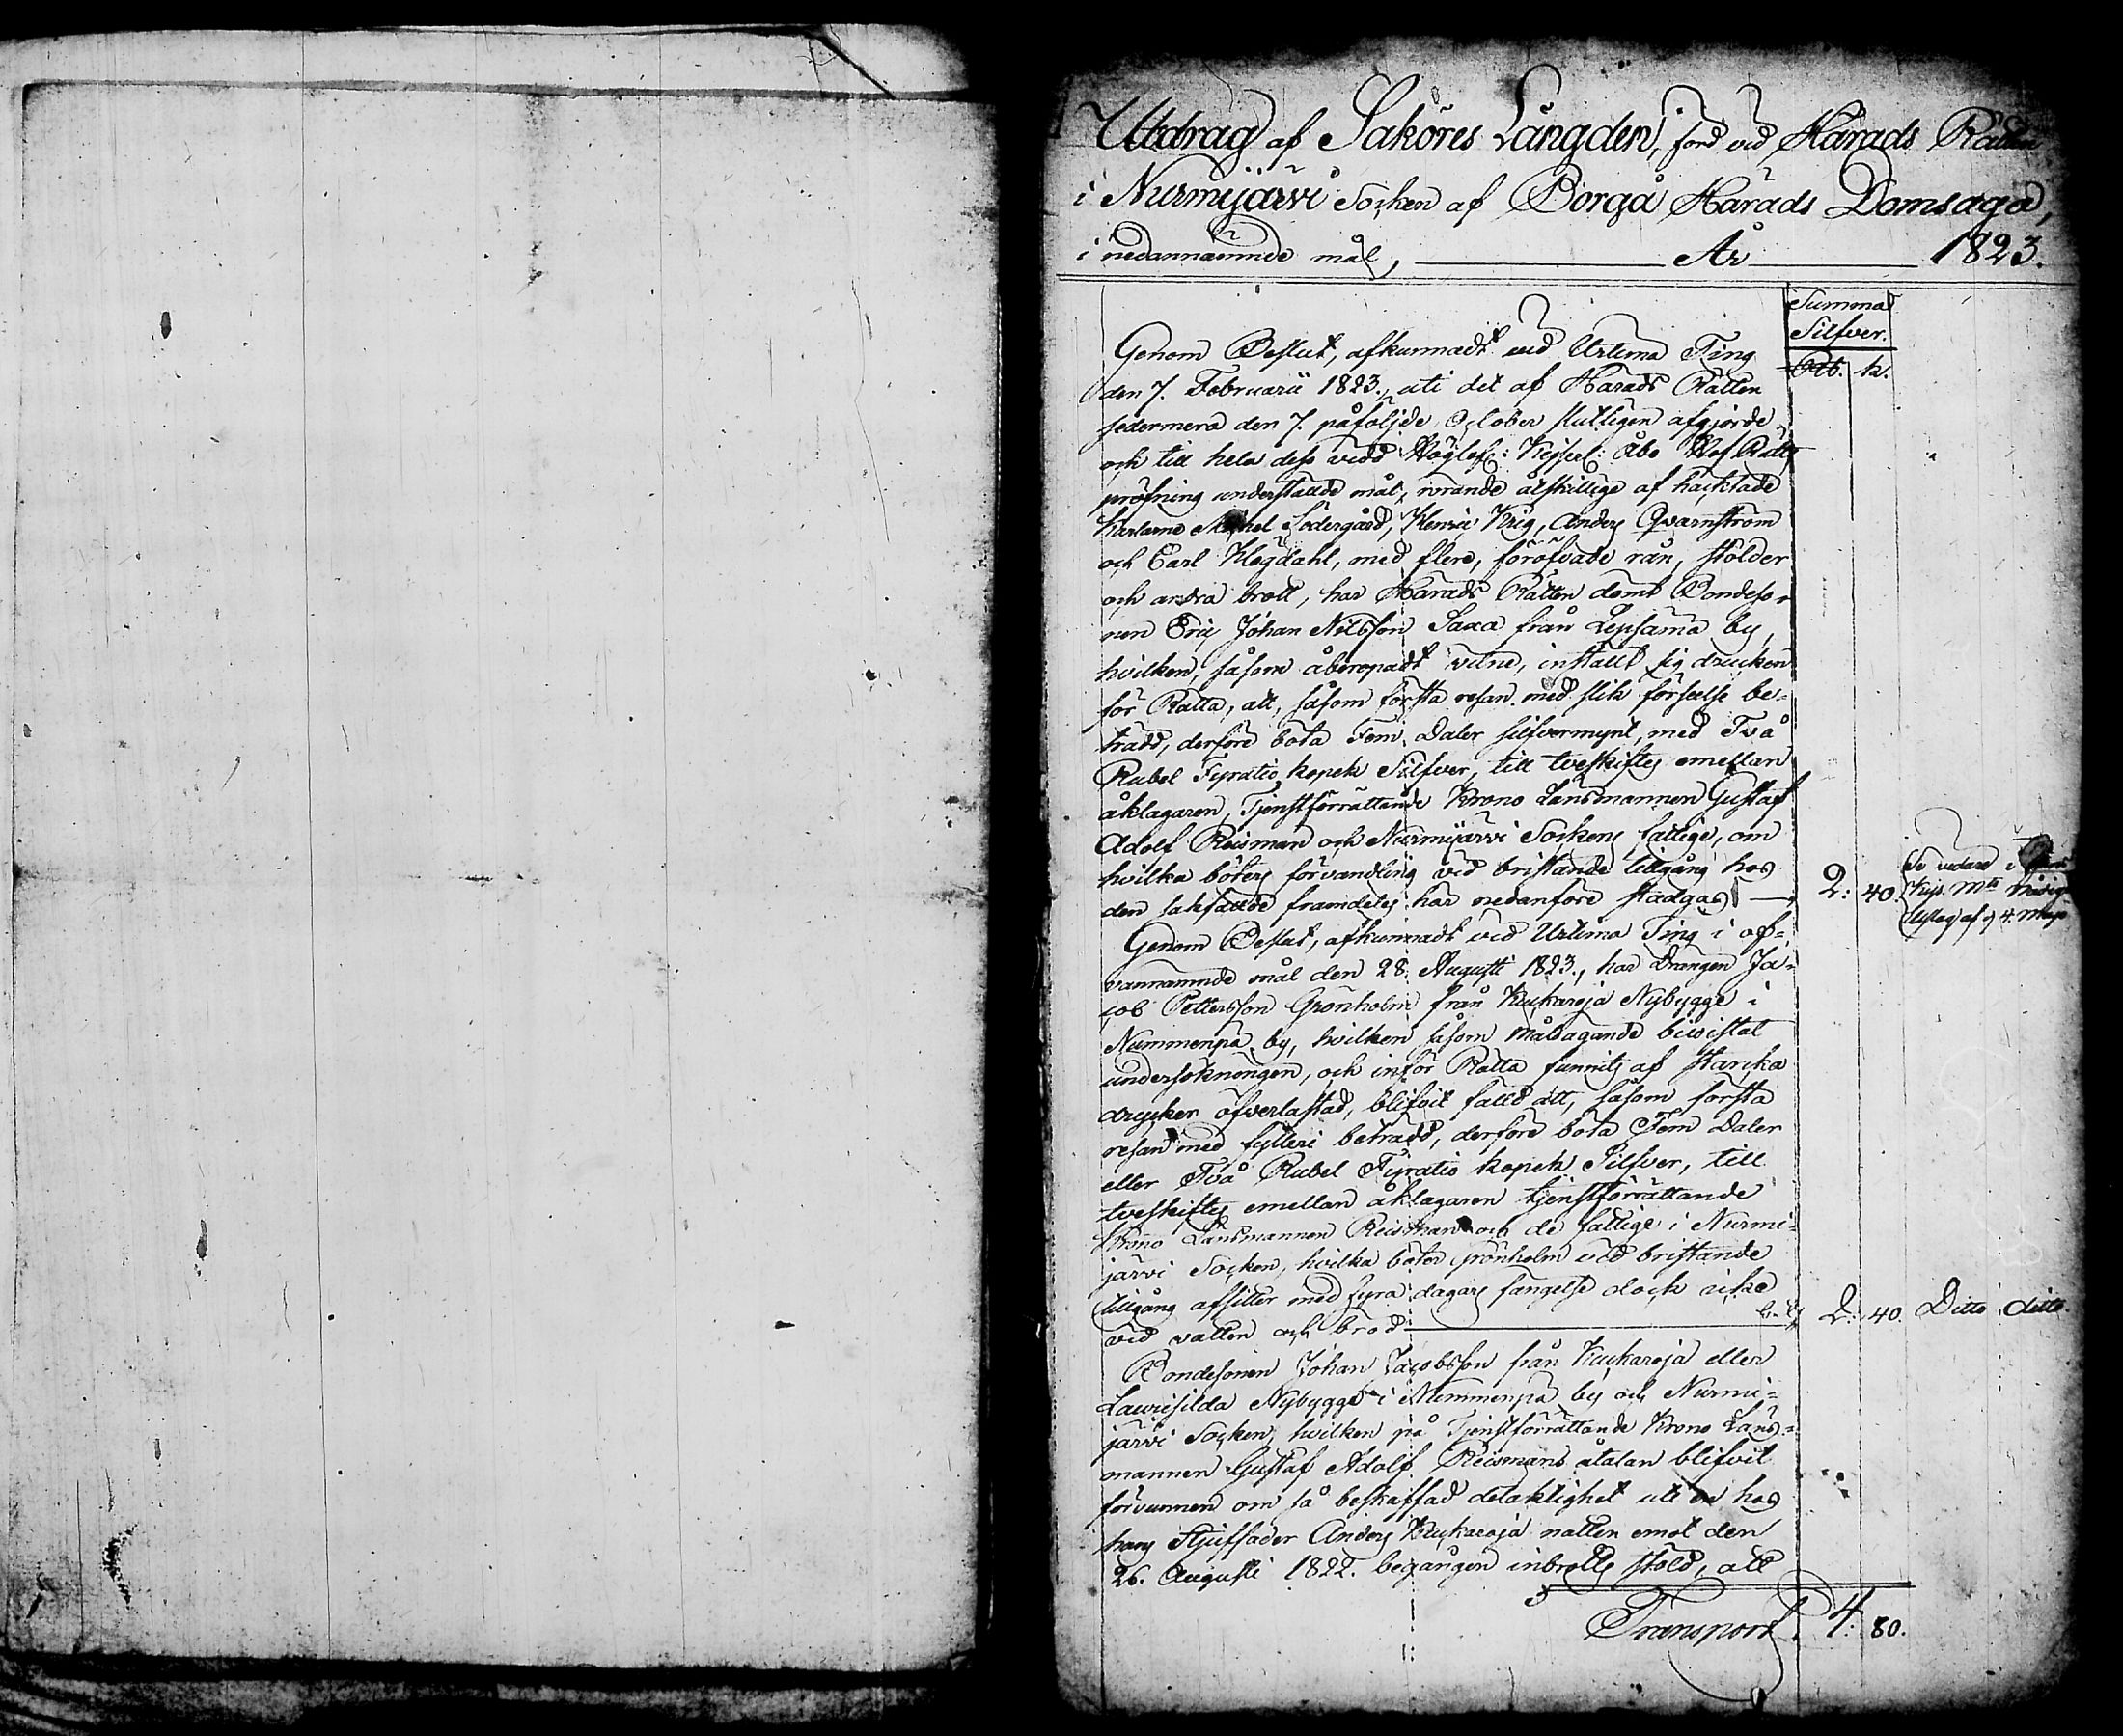 Utdrag af Saköres Längden, förd vid Härads Rätten
i Nurmijärvi Socken af Borgå Härads Domsaga,
i nedannämnde mål, År 1823.
Summa
Silfver.
Rub. k.
Genom Beslut, afkunnadt vid Urtima Ting
den 7. Februarii 1823., uti det af Härads Rätten
sedermera den 7. påföljde October slutligen afgjorde
och till hela dess vidd Höglofl: Kejserl: Åbo Hof Rätts
pröfning understälde mål, rörande åtskillige af häcktade
Karlarne Michel Södergård, Henric Krig, Anders Qvarnström
och Carl Klogdahl, med flere, föröfvade rån, stölder
och andra brott, har Härads Rätten dömt Bondeso-
nen Eric Johan Nilsson Saxa från Lepsämä by,
hvilken, såsom åberopadt vitne, inställt sig drucken
för Rätta, att, såsom första resan med slik förseelse be-
trädd, derföre böta Fem Daler silfvermynt, med Två
Rubel Fyratio kopek Silfver, till tveskiftes emellan
åklagaren, Tjenstförrättande Krono Länsmannen Gustaf
Adolf Reisman och Nurmijärvi Sockens fattige, om
hvilka böters förvandling vid bristande tillgång hos
den sakfällde framdeles här nedanföre stadgas
2: 40.
Se vidare i
Kejs. Mts Nådiga
Utslag af d 4. Maji
Genom Beslut, afkunnadt vid Urtima Ting i of-
vannämnde mål den 28. Augusti 1823., har Drängen Ja-
cob Pettersson Grönholm från Kuckaroja Nybygge i
Nummenpä by, hvilken såsom målsägande bivistat
undersökningen, och inför Rätta funnits af starcka
drycker öfverlastad, blifvit fälld att, såsom första
resan med fylleri beträdd, derföre böta Fem Daler
eller Två Rubel Fyratio kopek Silfver, till
tveskiftes emellan åklagaren tjenstförrättande
Krono Länsmannen Reisman och de fattige i Nurmi-
järvi Socken, hvilka böter Grönholm vid bristande
tillgång afsitter med fyra dagars fängelse dock icke
vid vatten och bröd
2: 40. Ditto ditto.
Bondesonen Johan Jacobsson från Kuckaroja eller
Lauriisilda Nybygge i Nummenpä by och Nurmi-
järvi Socken, hvilken på Tjenstförrättande Krono Läns-
mannen Gustaf Adolf Reismans åtalan blifvit
förvunnen om så beskaffad delaktighet uti en hos
hans Stjuffader Anders Kuckaroja natten emot den
26. Augusti 1822. begången inbrotts stöld, att
Transport 4: 80.